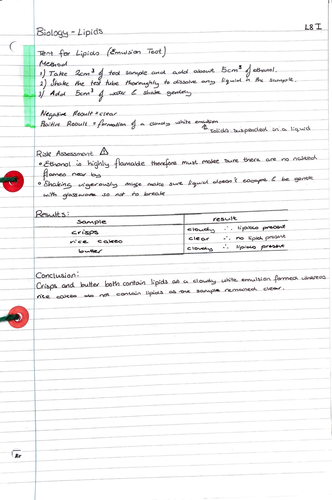 L8 I
Biology - Lipids
Test for Lipids (Emulsion Test)
Method
1) Take 2cm³ of test sample and add about 5cm³ of ethanol.
2) Shake the test tube thoroughly to dissolve any liquid in the sample.
3) Add 5cm³ of water & shake gently
Negative Result = clear
Positive Result = formation of a cloudy white emulsion
↳ solids suspended in a liquid
Risk Assessment ⚠
• Ethanol is highly flamable therefore must make sure there are no naked
flames near by
• Shaking vigerously make sure liquid doesn't escape & be gentle
with glassware so not to break
Results:
sample result
crisps cloudy ∴ lipids present
rice cakes clear ∴ no lipid present
butter cloudy ∴ lipids present
Conclusion:
Crisps and butter both contain lipids as a cloudy white emulsion formed whereas
rice cakes do not contain lipids as the sample remained clear.